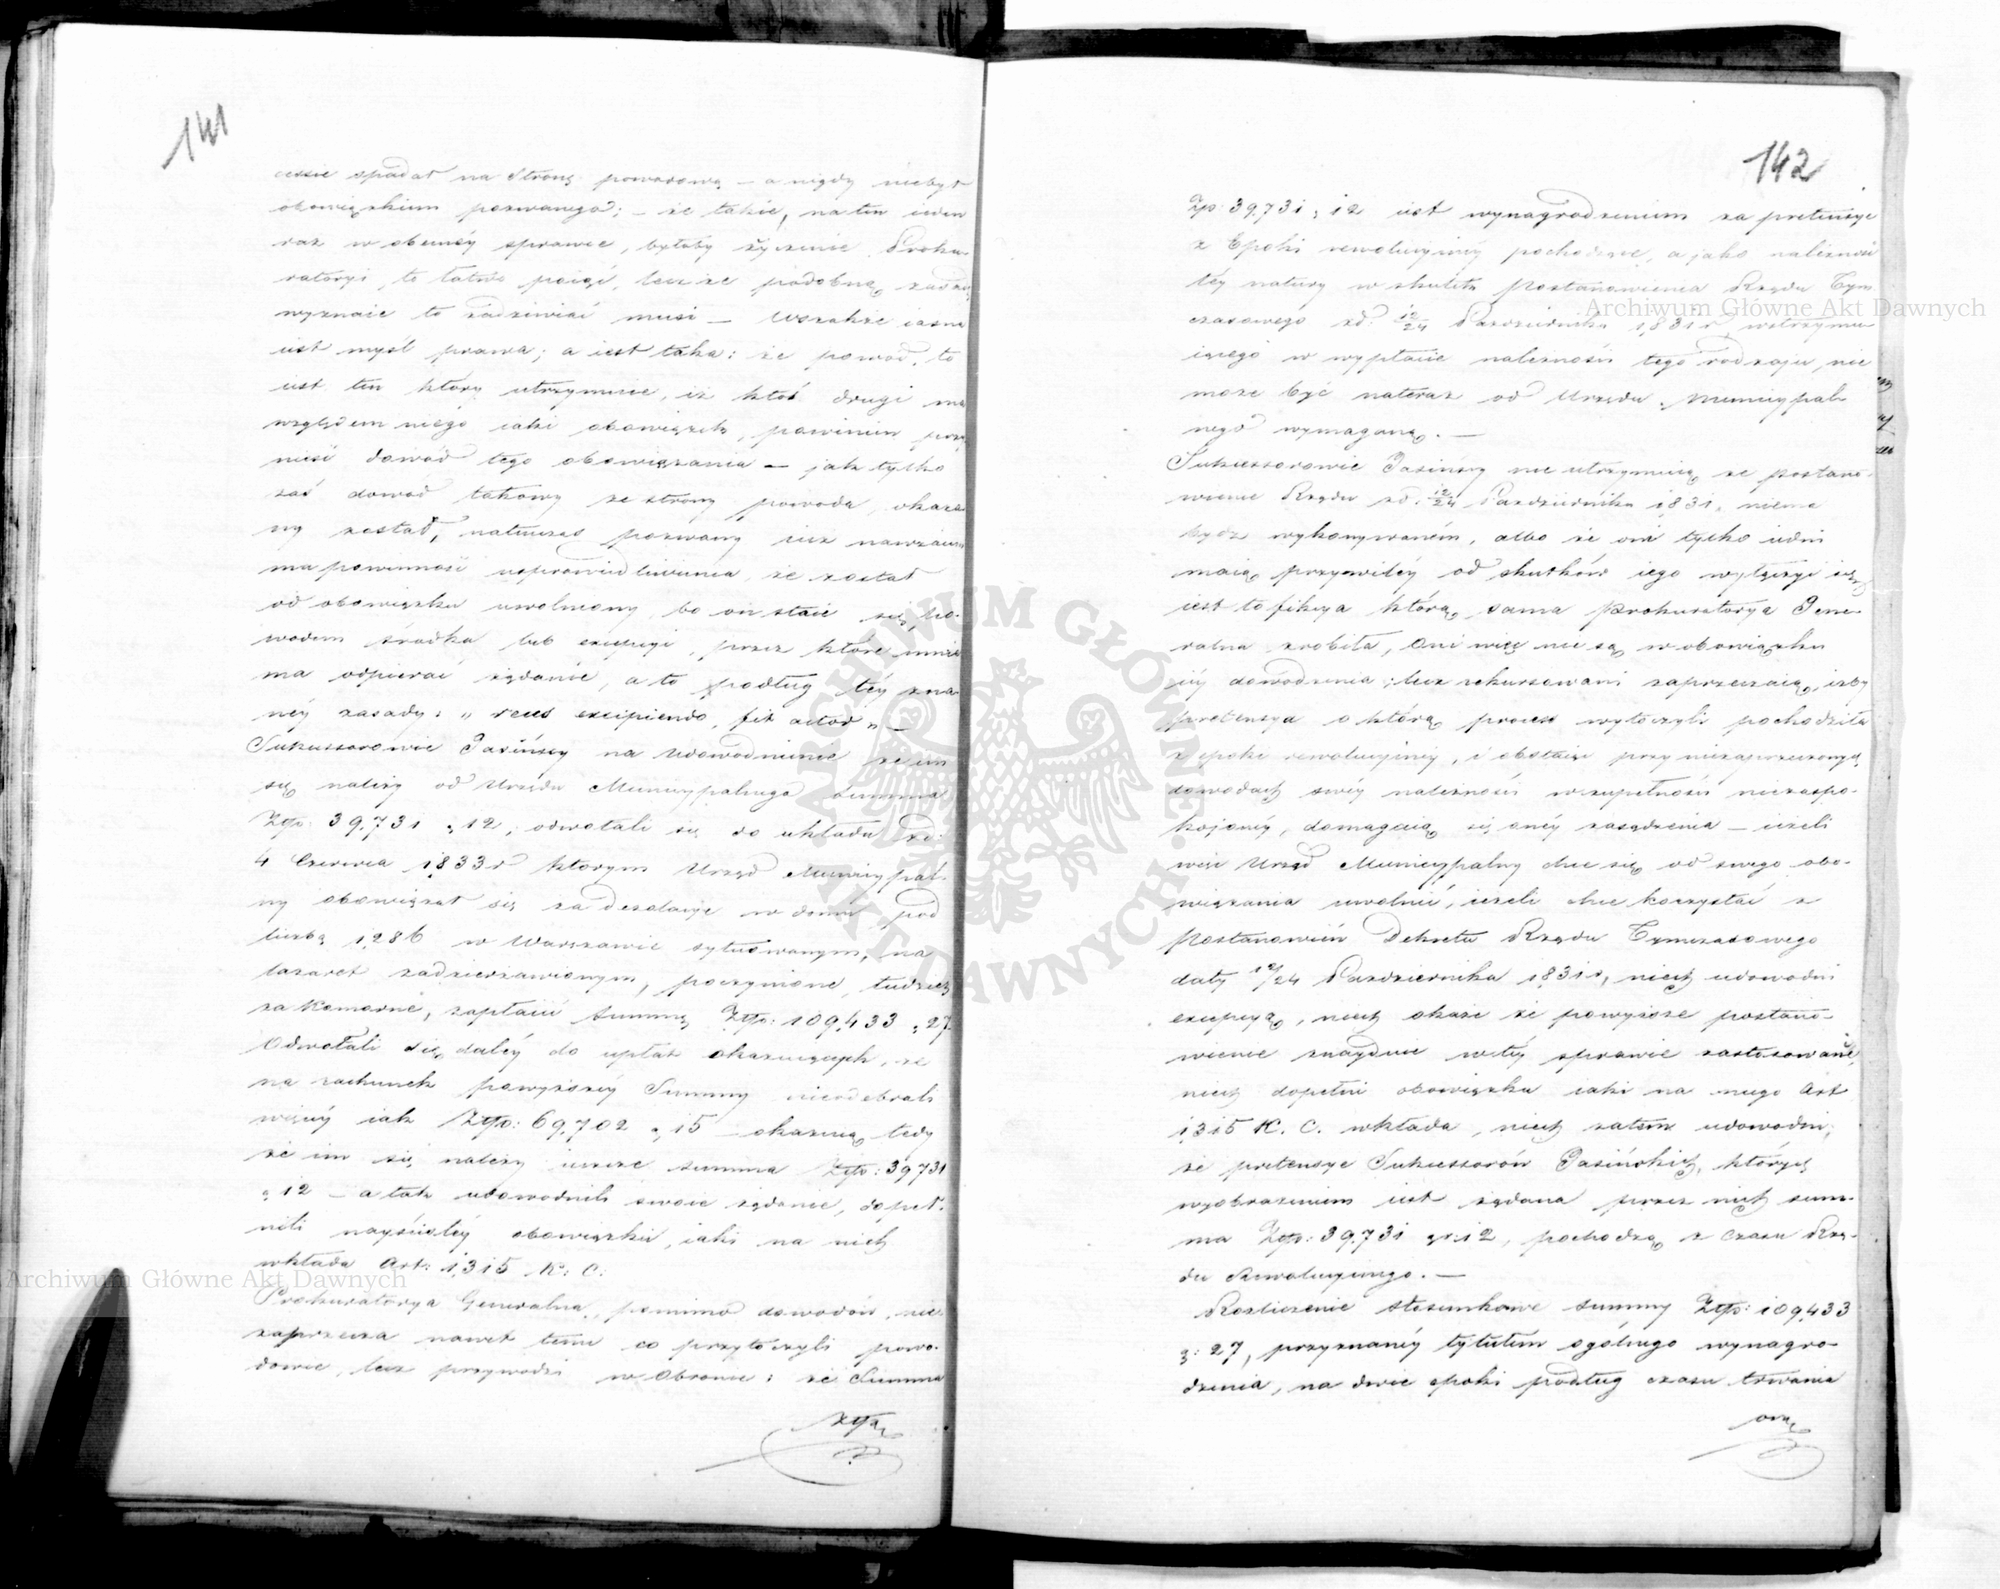 141
cessie spadał na Stronę powodową – a nigdy niebył
obowiązkiem pozwanego; – że takie, na ten ieden
raz w obecnéy sprawie, byłoby życzenie Proku-
ratoryi, to łatwo poiąć, lecz że podobną zasadę
wyznaie to zadziwiać musi – Wszakże iasna
iest myśl prawa; a iest taka: że powod, to
iest ten który utrzymuie, iż ktoś drugi ma
względem niego iaki obowiązek, powinien przy
nieść dowód tego obowiązania – jak tylko
zaś dowod takowy ze strony powoda, okaza
ny został, natenczas pozwany iuż nawzaiem
ma powinność usprawiedliwienia, że został
od obowiązku uwolniony, bo on staie się po-
wodem środka lub excepcyi, przez które mnie
ma odpierać żądanie, a to podług téy zna-
néy zasady: „reus excipiendo, fit actor" –
Sukcessorowie Jasińscy na Udowodnienie że im
się należy od Urzędu Municypalnego Summa
Złp: 39,731 g 12, odwołali się do układu zd:
4 Czerwca 1833 r którym Urząd Municypal-
ny obowiązał się za dezolacje w domu pod
liczbą 1286 w Warszawie sytuowanym, na
lazaret zadzierżawionym, poczynione, tudzież
za komorne, zapłacić Summę Złp: 109,433 g 27.
Odwołali się daléy do upłat okazuiących, że
na rachunek powyższéy Summy nieodebrali
więcéy iak Złp: 69,702 g 15 – okazuią tedy
że im się należy ieszcze summa Złp: 39731
g 12 – a tak udowodnili swoie żądanie, dopeł-
nili nayściśléy obowiązku, iaki na nich
wkłada Art: 1315 K: C:
Prokuratorya Generalna, pomimo dowodów, nie
zaprzecza nawet temu co przytoczyli powo-
dowie, lecz przywodzi w Obronie: że Summa
Złp:
142
Zp: 39,731 g 12 iest wynagrodzeniem za pretensye
z Epoki rewolucyinéy pochodzące, a jako należność
téy natury w skutek Postanowienia Rządu Tym
czasowego zd: 12/24 Października 1831 r, wstrzymu-
iącego w wypłacie należności tego rodzaju, nie
może być nateraz od Urzędu Municypal-
nego wymaganą. –
Sukcessorowie Jasińscy nie utrzymuią że postano-
wienie Rządu zd: 12/24 Października 1831 niema
bydź wykonywaném, albo że oni tylko iedni
maią przywiléy od skutków iego wyłączyć się
iest to fikcya którą sama Prokuratorya Jene-
ralna zrobiła, Oni więc nie są w obowiązku
iéy dowodzenia; lecz rekursowani zaprzeczaią, iżby
pretensya o którą proces wytoczyli pochodziła
z epoki rewolucyinéy, i obstaiąc przy niezaprzeczonych
dowodach swéy należności w zupełności niezaspo-
kojonéy, domagaią się onéy zasądzenia – ieżeli
więc Urząd Municypalny chce się od swego obo-
wiązania uwolnić, ieżeli chce korzystać z
Postanowień Dekretu Rządu Tymczasowego
daty 12/24 Października 1831 r, niech udowodni
excepcyą, niech okaże że powyższe postano-
wienie znayduie w téy sprawie zastosowanie,
niech dopełni obowiązku iaki na niego Art
1315 K. C. wkłada, niech zatem udowodni,
że pretensye Sukcessorów Jasińskich, których
wyobrażeniem iest żądana przez nich sum-
ma Złp: 39,731 gr: 12, pochodzą z czasu Rzą-
du Rewolucyinego. –
Rozliczenie stosunkowe summy Złp: 109,433
g: 27, przyznanéy tytułem ogólnego wynagro-
dzenia, na dwie epoki podług czasu trwania